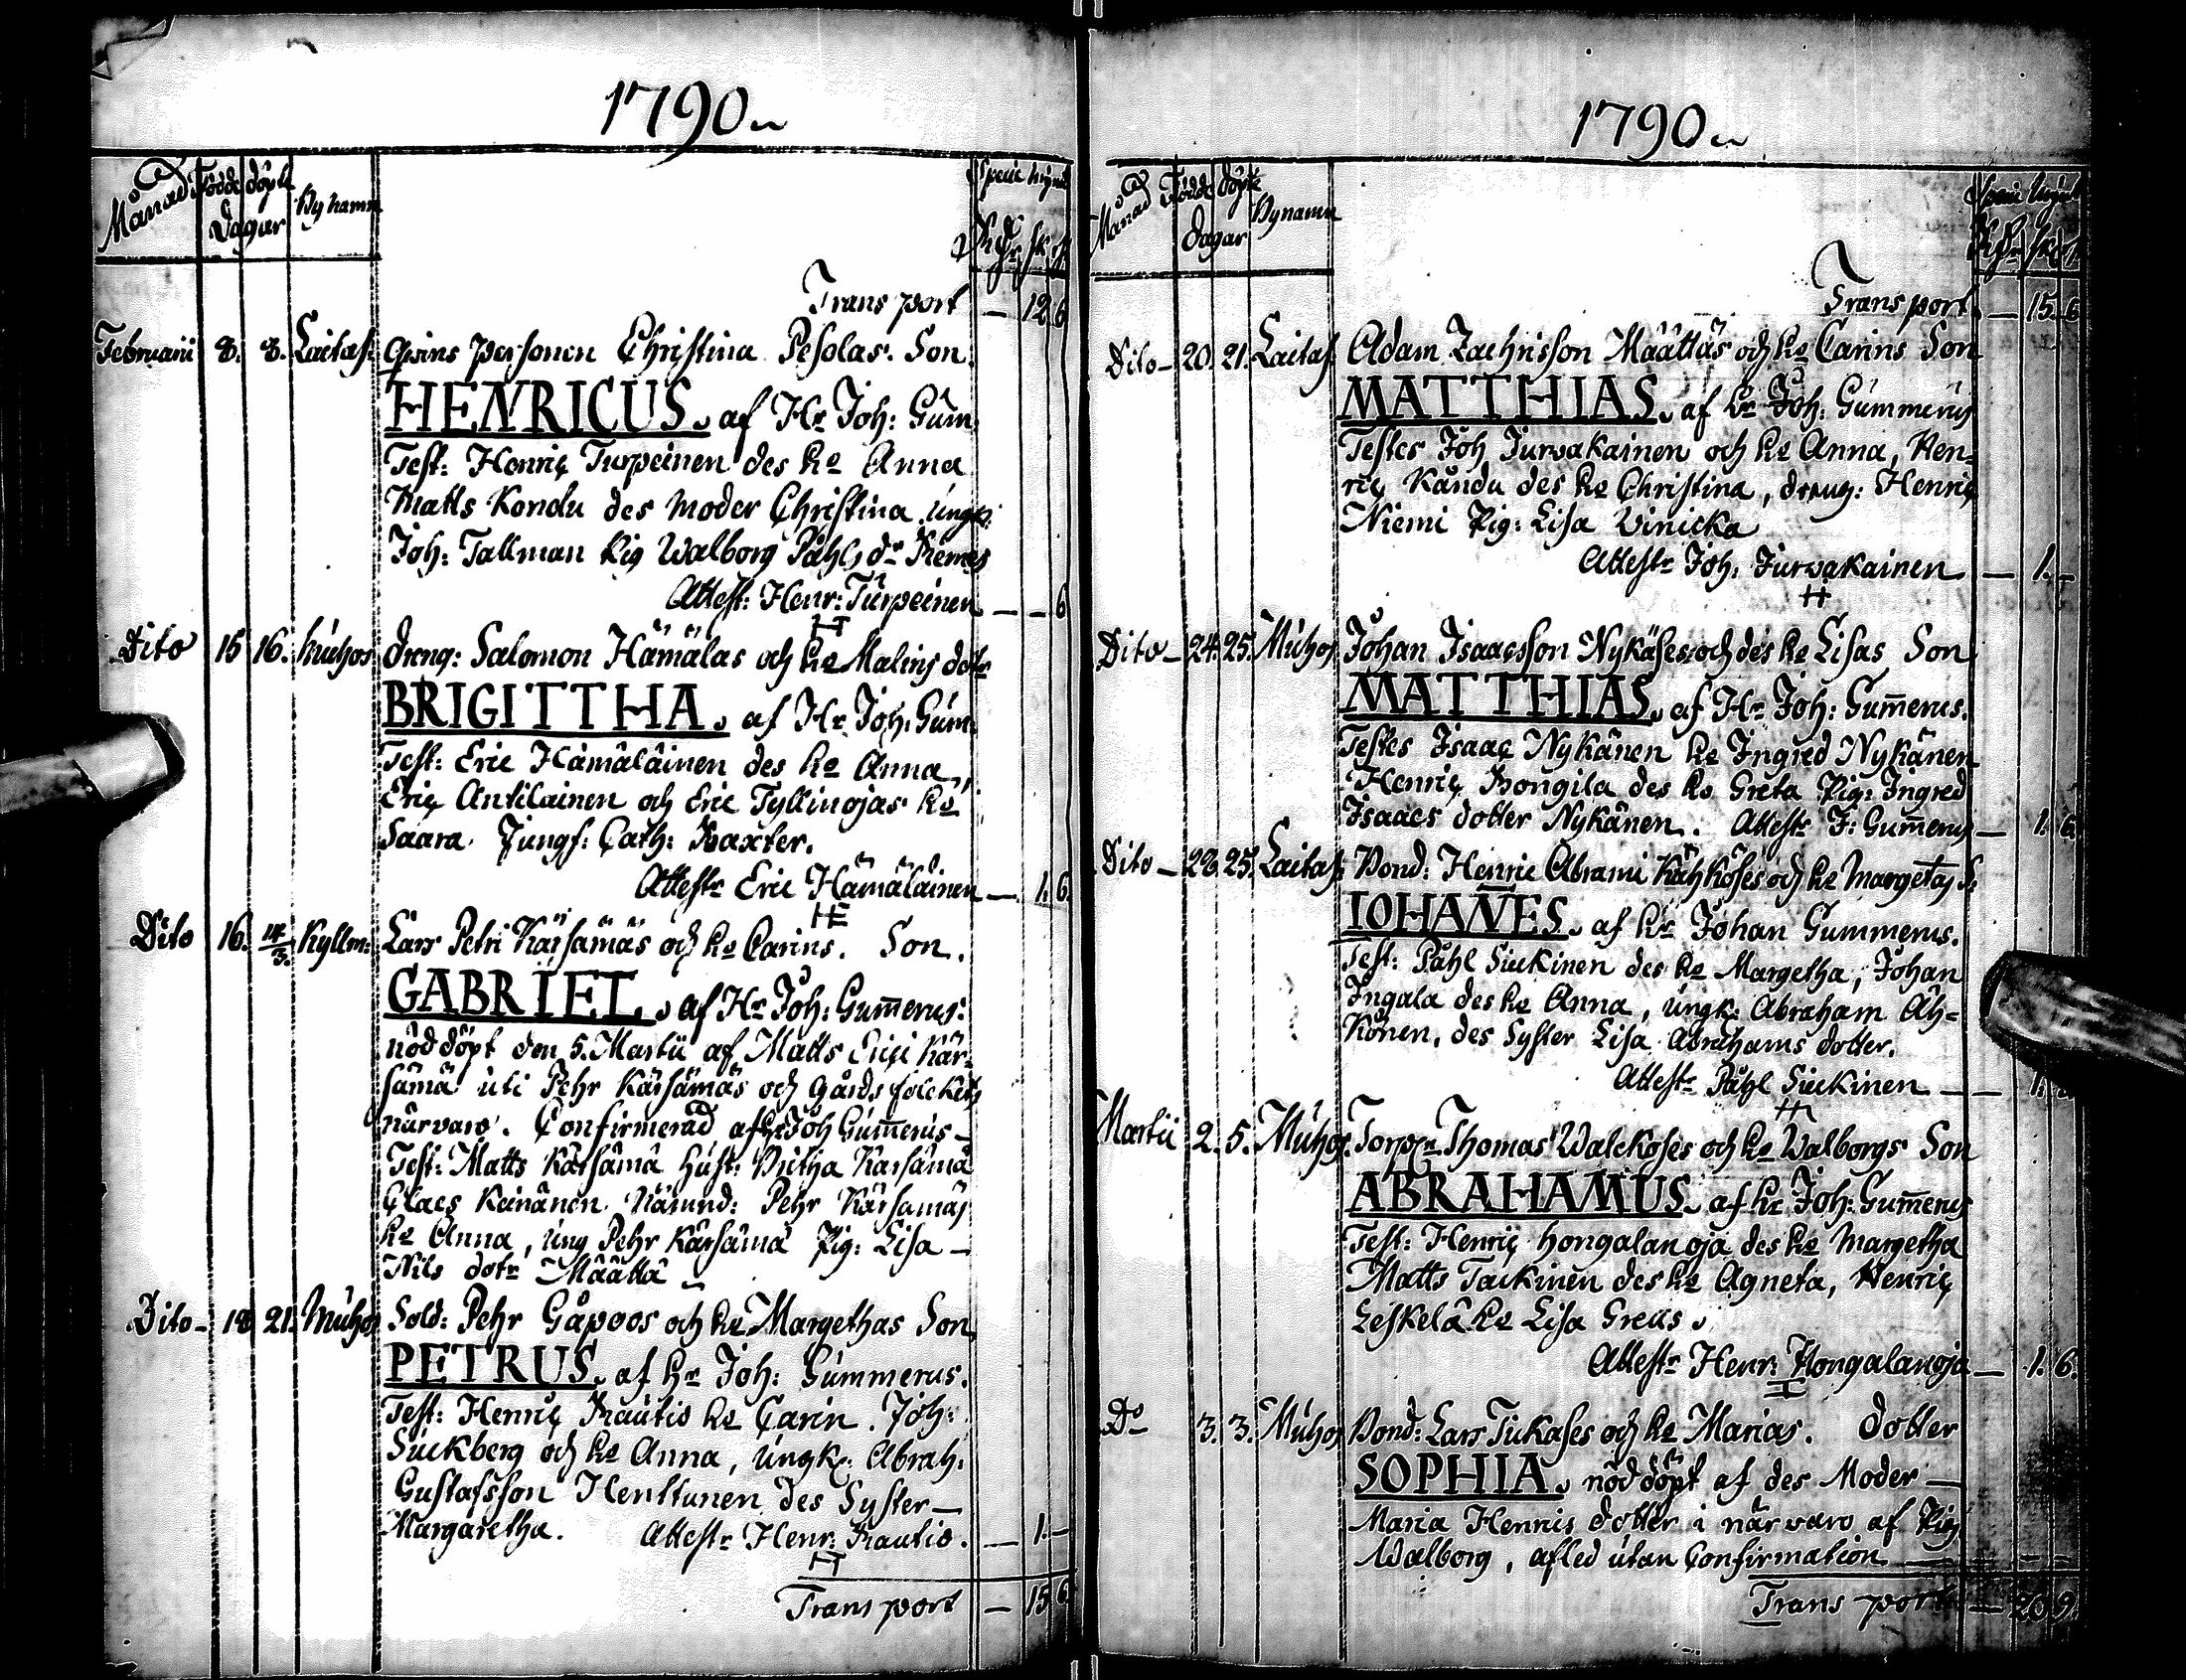 1790
Månad Födde döpte Dagar Bynamn
Transport — 12 6
Februarii 8. 8. Laitas: Qvins personen Christina Pesolas. Son
HENRICUS. af Hr Joh: Gum
Test: Henriç Turpeinen des he Anna
Matts Kondu des moder Christina ungk:
Joh: Tallman Pig Walborg Påhls dr
Attest: Henr: Turpeinen — — 6
Dito 15 16. Muhos dreng: Salomon Hämäläs och he Malins dotr
BRIGITTHA. af Hr Joh: Gum
Test: Eric Hämäläinen des he Anna,
Eriç Antilainen och Eric Tyllinojas he
Saara. Jungf: Cath: Baxter.
Attestr Eric Hämäläinen — 1. 6.
Dito 16. 14/3. Kyllm: Lars Petri Kärsämäs och he Carins. Son.
GABRIEL. af Hr Joh: Gum̄erus:
nöd döpt den 5. Martii af Matts Eriçi Kär=
sämä uti Pehr Kärsämäs och gårds folckets
närvaro. Confirmerad af Hr Joh Gum̄erus —
Test: Matts Kärsämä hust: Kärsämä
Claes Keinänen. Nämnd: Pehr Kärsämäs
he Anna, ung Pehr Kärsämä Pig: Lisa —
Nils dotr Määttä
Dito — 18 21. Muhos Sold: Pehr Gåpoos och he Margethas Son
PETRUS. af hr Joh: Gummerus.
Test: Henriç Rautio he Çarin. Joh:
Suckberg och he Anna, Ungk: Abrah:
Gustafsson Henttunen des Syster —
Margaretha. Attestr Henr: Rautio. — 1. —
Transport — 15 6
1790
Månad Födde döpte Dagar Bynamn
Transport — 15. 6
Dito — 20. 21. Laitas. Adam Zachrisson Määttäs och he Carins Son
MATTHIAS. af hr Joh: Gummerus
Testes Joh Jurvakainen och he Anna, Hen=
riç Kåndu des he Christina, dreng: Henriç
Niemi Pig: Lisa Vinicka
Attestr Joh: Jurvakainen — 1. —
Dito — 24. 25. Muhos Johan Isaacsson Nykäses och des he Lisas Son
MATTHIAS. af Hr Joh: Gum̄erus.
Testes Isaaç Nykänen he Ingred Nykänen
Henriç Hongila des he Greta Pig: Ingred
Isaacs dotter Nykänen. Attestr J: Gum̄erus — 1. 6.
Dito — 25. Laitas: Bond: Henric Abrami och he Margetas S:
IOHAN̄ES. af hr Johan Gummerus.
Test: Påhl Siickinen des he Margetha, Johan
Ingala des he Anna, ungk: Abraham Äh=
könen, des Syster Lisa Abrahams dotter.
Attestr Påhl Siickinen — 1.
Martii 2. 5. Muhos. Torpr Thomas Walckoses och he Walborgs Son
ABRAHAMUS. af hr Joh: Gum̄erus
Test: Henriç hongalanoja des he Margetha
Matts Tackinen des he Agneta, Henriç
Leskelä he Lisa Greus.
Attestr Henr: Hongalanoja — 1. 6.
Do 3. 3. Muhos Bond: Lars Tickases och he Marias. Dotter
SOPHIA. nöd döpt af des Moder —
Maria Henrics dotter i närvaro af Pig
Walborg, afled utan Confirmation — — —
Transport — 20 9